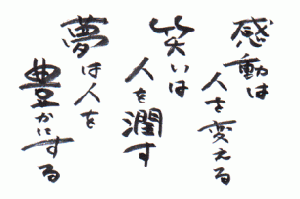 感動は
人を変える
笑いは
人を潤す
夢は人を
豊かにする